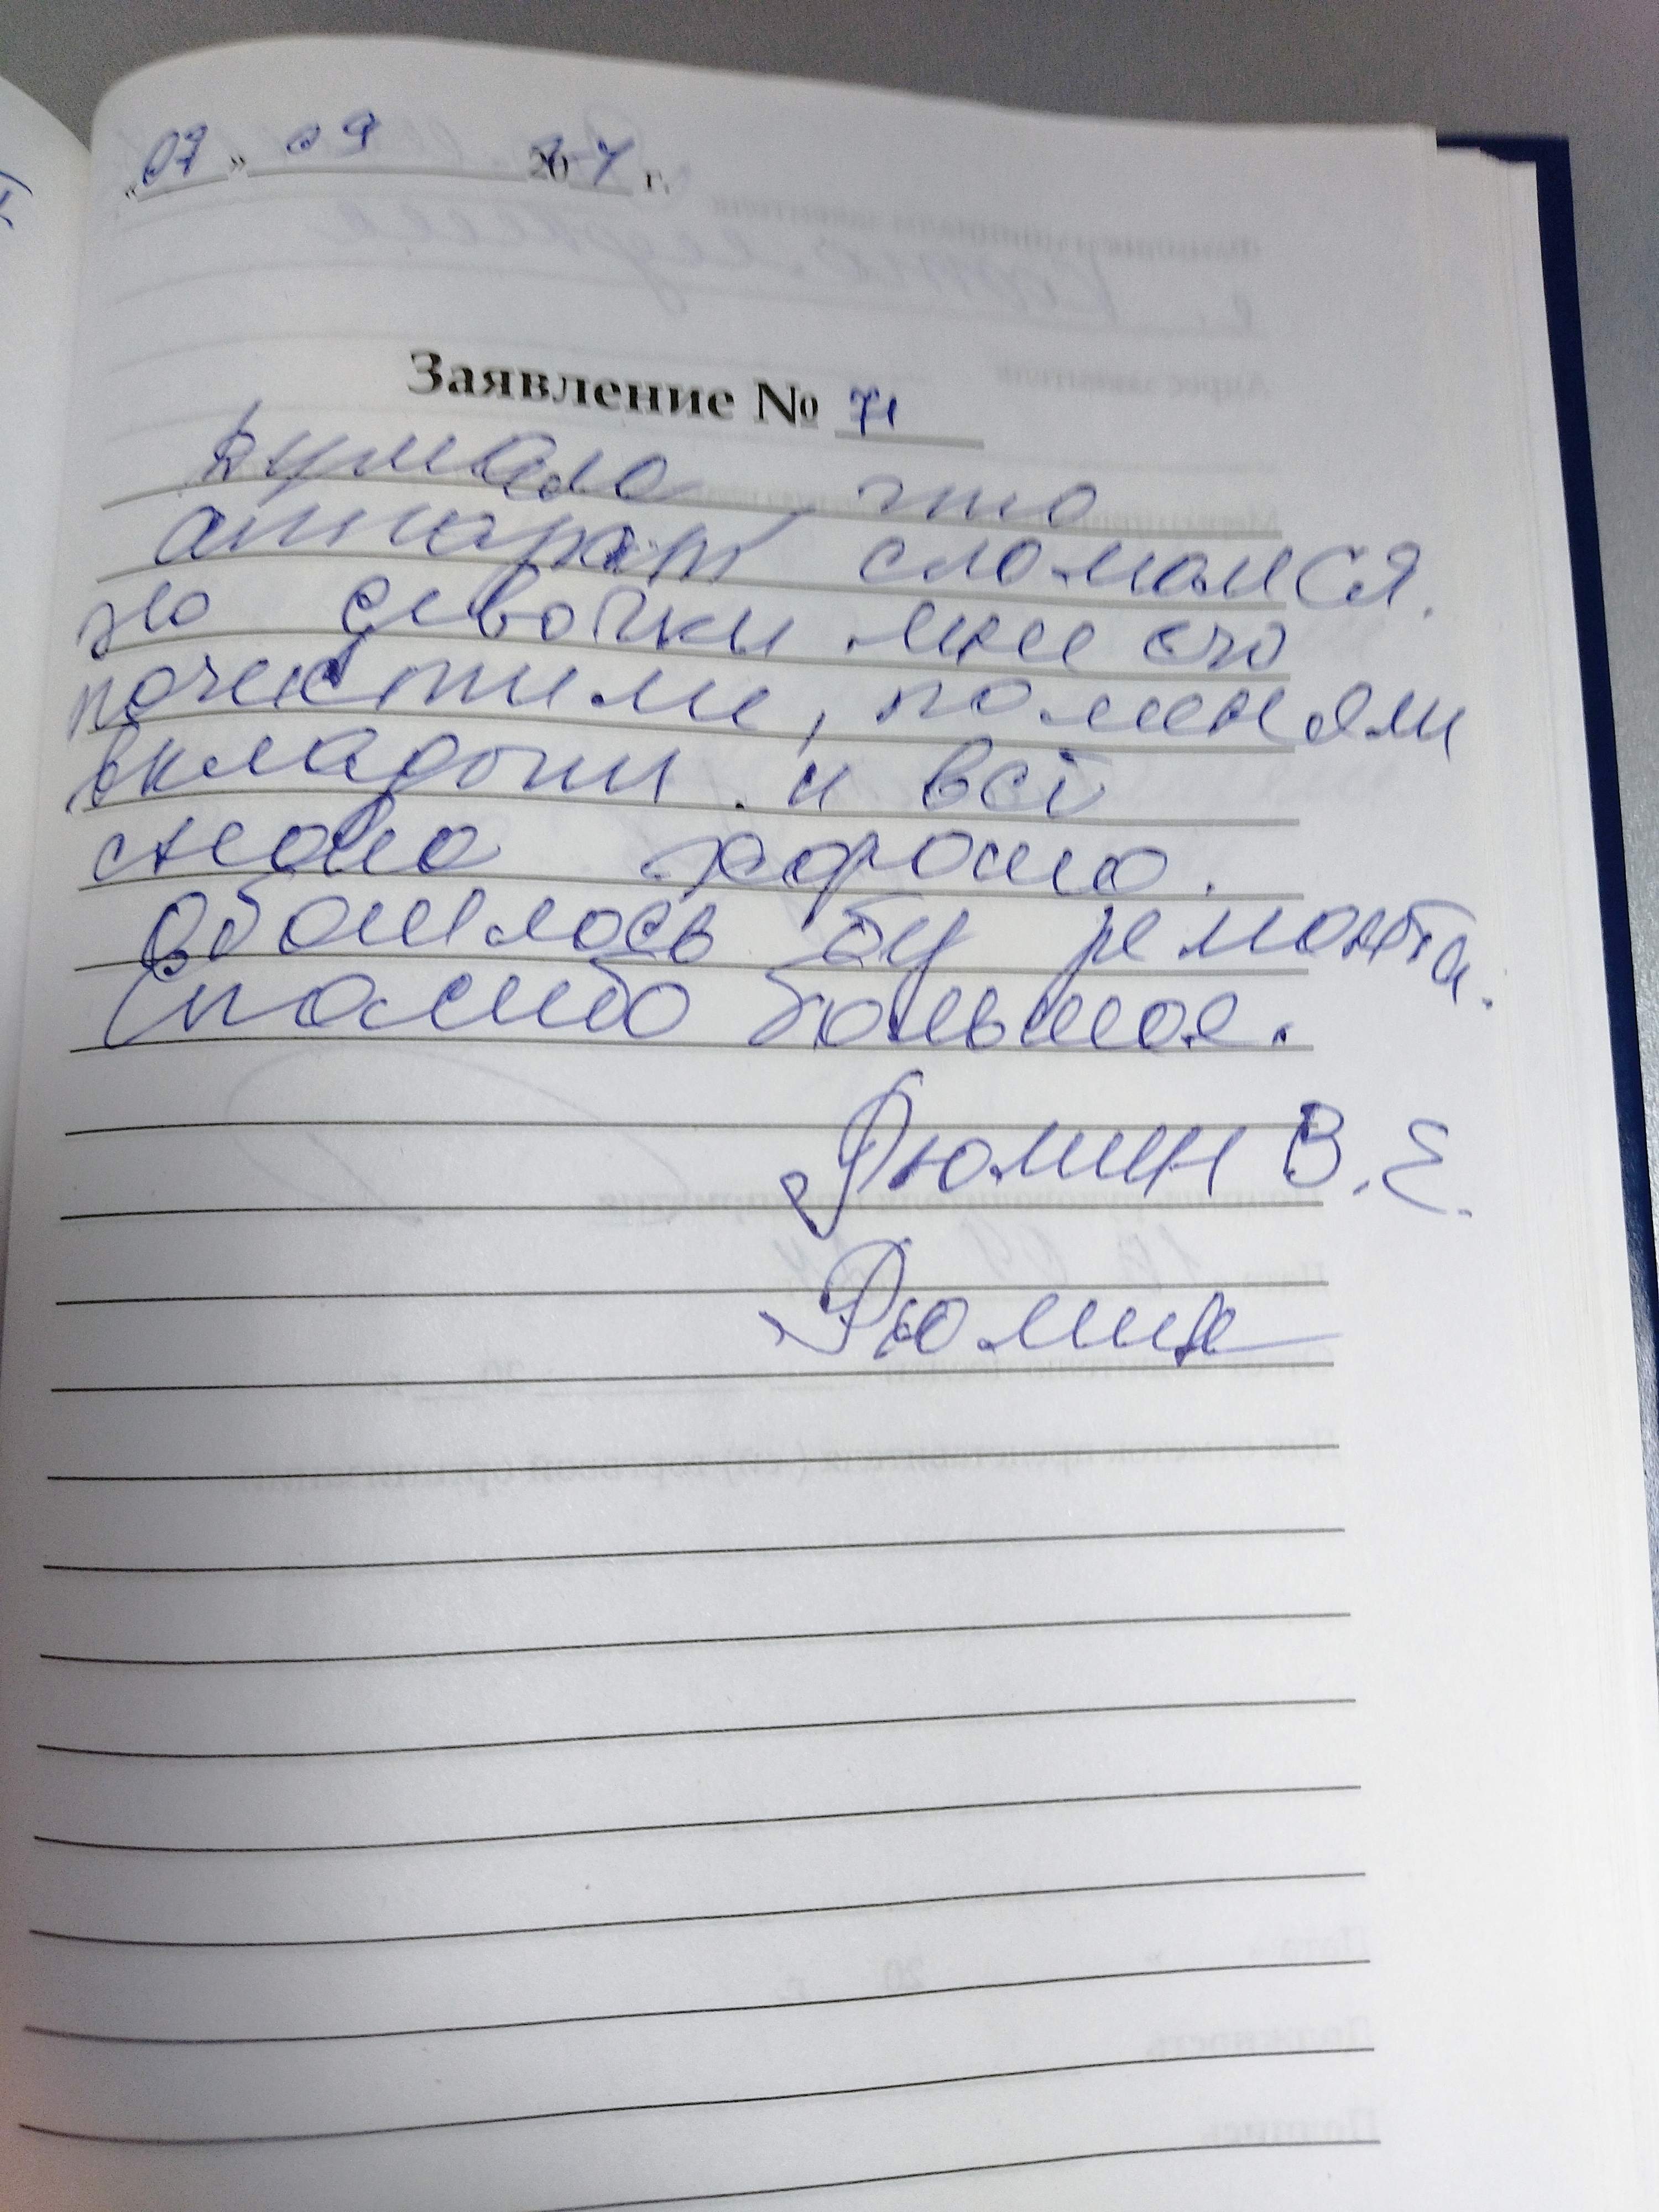 "07" 09 2024 г.
Заявление № 71
Думала что
аппарат сломался.
Но девочки мне его
почистили, поменяли
вкладыши и всё
стало хорошо.
Обошлось бу ремонта.
Спасибо большое.
Дюмин В. Е.
Дюмин